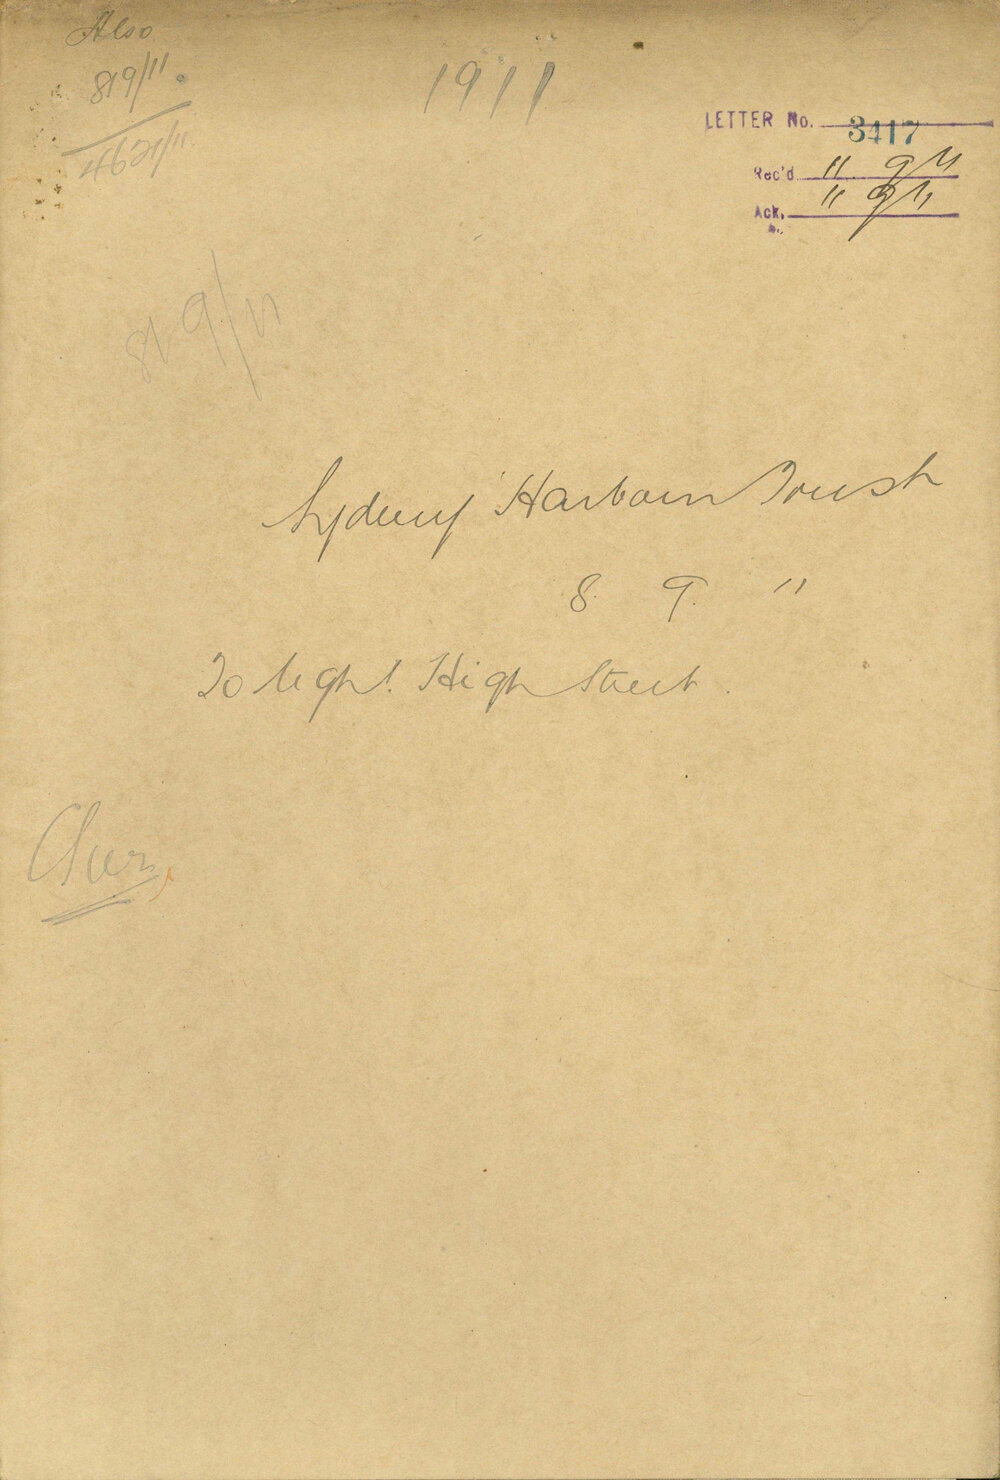 Also
819/11.
4621/11
1911
LETTER No. 3417
Rec'd 11 9 11
Ack. 11 9 11
819/11
Sydney Harbour Trust
8. 9. 11
To light High Street.